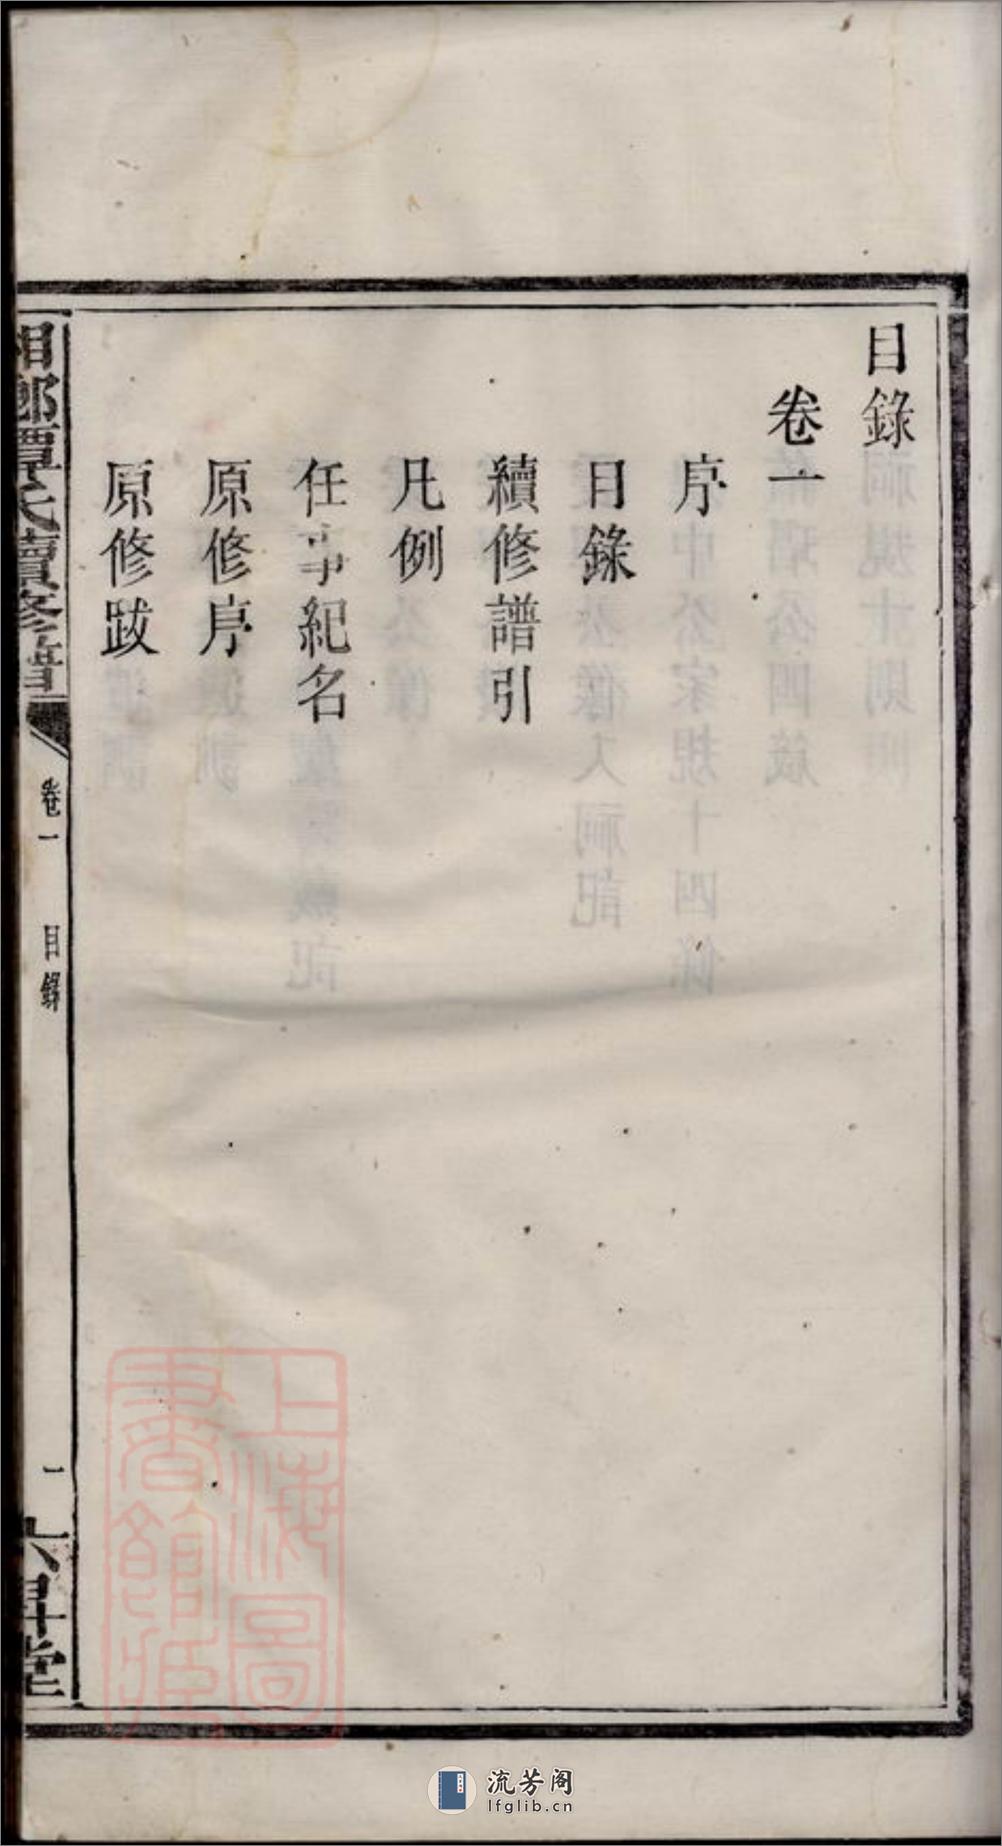 目錄
卷一
序
目錄
續修譜引
凡例
任事紀名
原修序
原修跋
湘鄉譚氏續修譜
卷一
目錄
一
六昇堂
上海圖書館藏
流芳阁
lfglib.cn